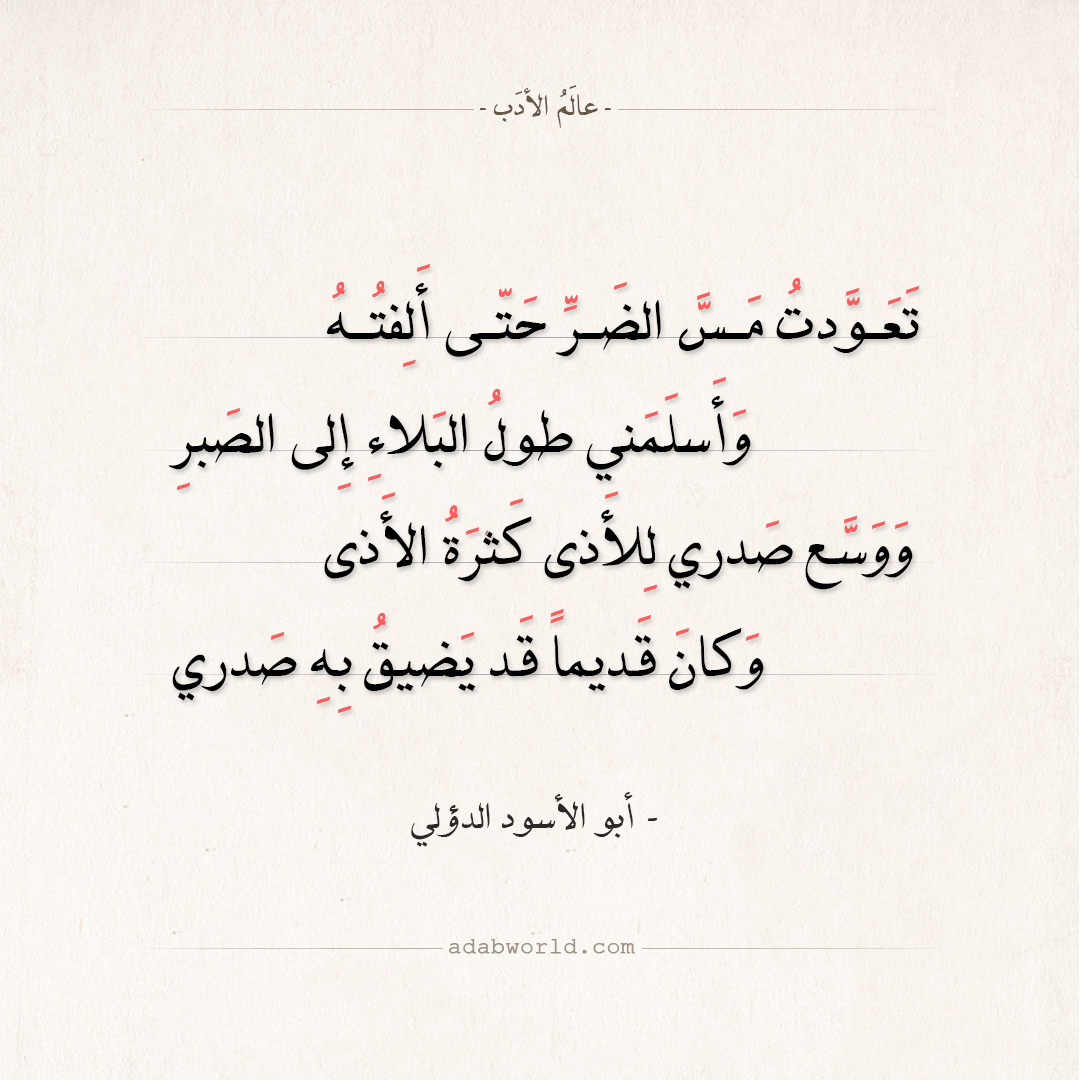 - عالَمُ الأدَب -
تَعَـوَّدتُ مَـسَّ الضَـرِّ حَتّـى أَلِفتُـهُ
وَأَسلَمَني طولُ البَلاءِ إِلى الصَبرِ
وَوَسَّـع صَدري لِلأَذى كَثرَةُ الأَذى
وَكانَ قَديماً قَد يَضيقُ بِهِ صَدري
- أبو الأسود الدؤلي
adabworld.com